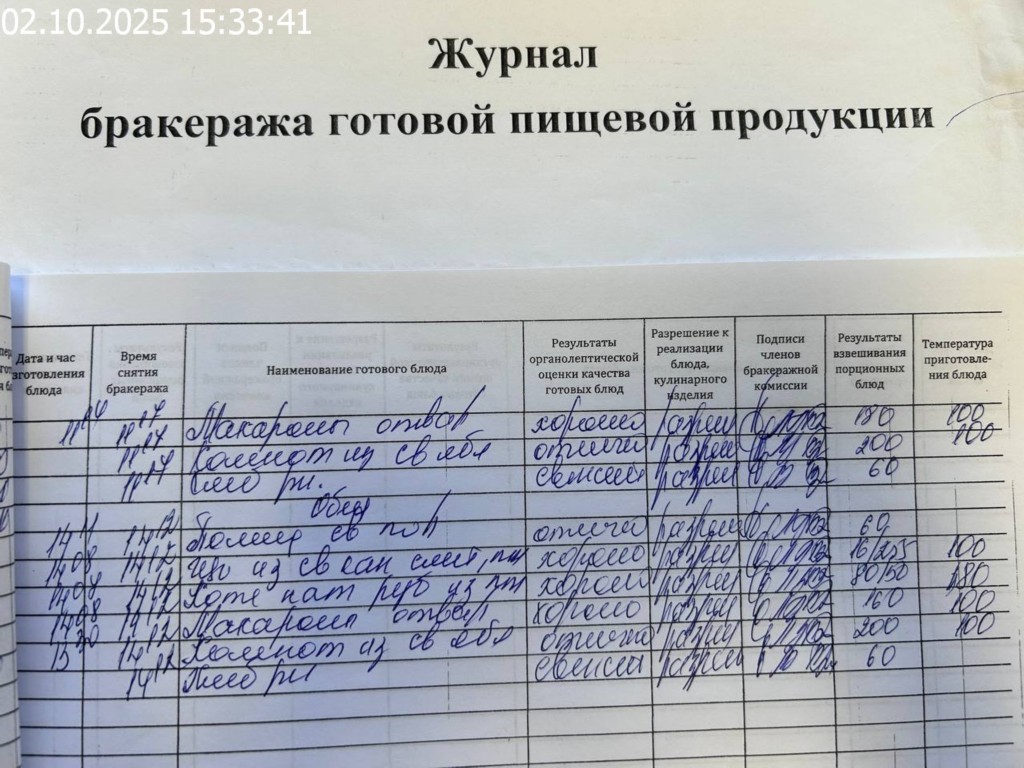 02.10.2025 15:33:41
Журнал
бракеража готовой пищевой продукции
Дата и час
зготовления
блюда
Время
снятия
бракеража
Наименование готового блюда
Результаты
органолептической
оценки качества
готовых блюд
Разрешение к
реализации
блюда,
кулинарного
изделия
Подписи
членов
бракеражной
комиссии
Результаты
взвешивания
порционных
блюд
Температура
приготовле-
ния блюда
11 17 Макароны отвар хорошо разреш 180 100
11 17 Компот из св ябл отлично разреш 200 100
11 17 Хлеб рж. свежий разреш 60
Обед
14 12 Помид св пор отлично разреш 60
14 08 14 12 Щи из св кап смет, хорошо разреш 100
14 12 нат хорошо разреш 80/50 180
14 08 14 12 Макароны отвар хорошо разреш 160 100
14 12 Компот из св ябл отлично разреш 200 100
14 12 Хлеб рж свежий разреш 60